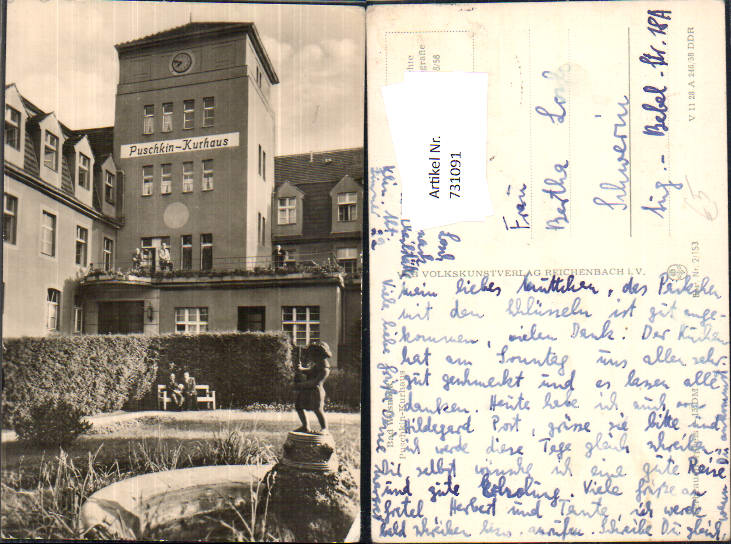 Puschkin-Kurhaus
Artikel Nr.
731091
Frau
Bertha
Schwerin
Aug.-Bebel-Str. 18A
V 11 28 A 246/58 DDR
VOLKSKUNSTVERLAG REICHENBACH i. V.
mein liebes Muttchen, das Päckchen
mit den Schlüsseln ist gut ange-
kommen, vielen Dank! Der Kuchen
hat am Sonntag uns allen sehr
gut geschmeckt und es lassen alle
danken. Heute habe ich auch von
Hildegard Post, grüsse sie bitte und
ich werde diese Tage gleich schreiben.
Dir selbst wünsche ich eine gute Reise
und gute Erholung. Viele Grüsse an
Gretel Herbert und Tante, ich werde
bald schreiben bzw. anrufen. Schreibe Du gleich,
wenn Du ankommst
Viele liebe Grüsse
Puschkin-Kurhaus